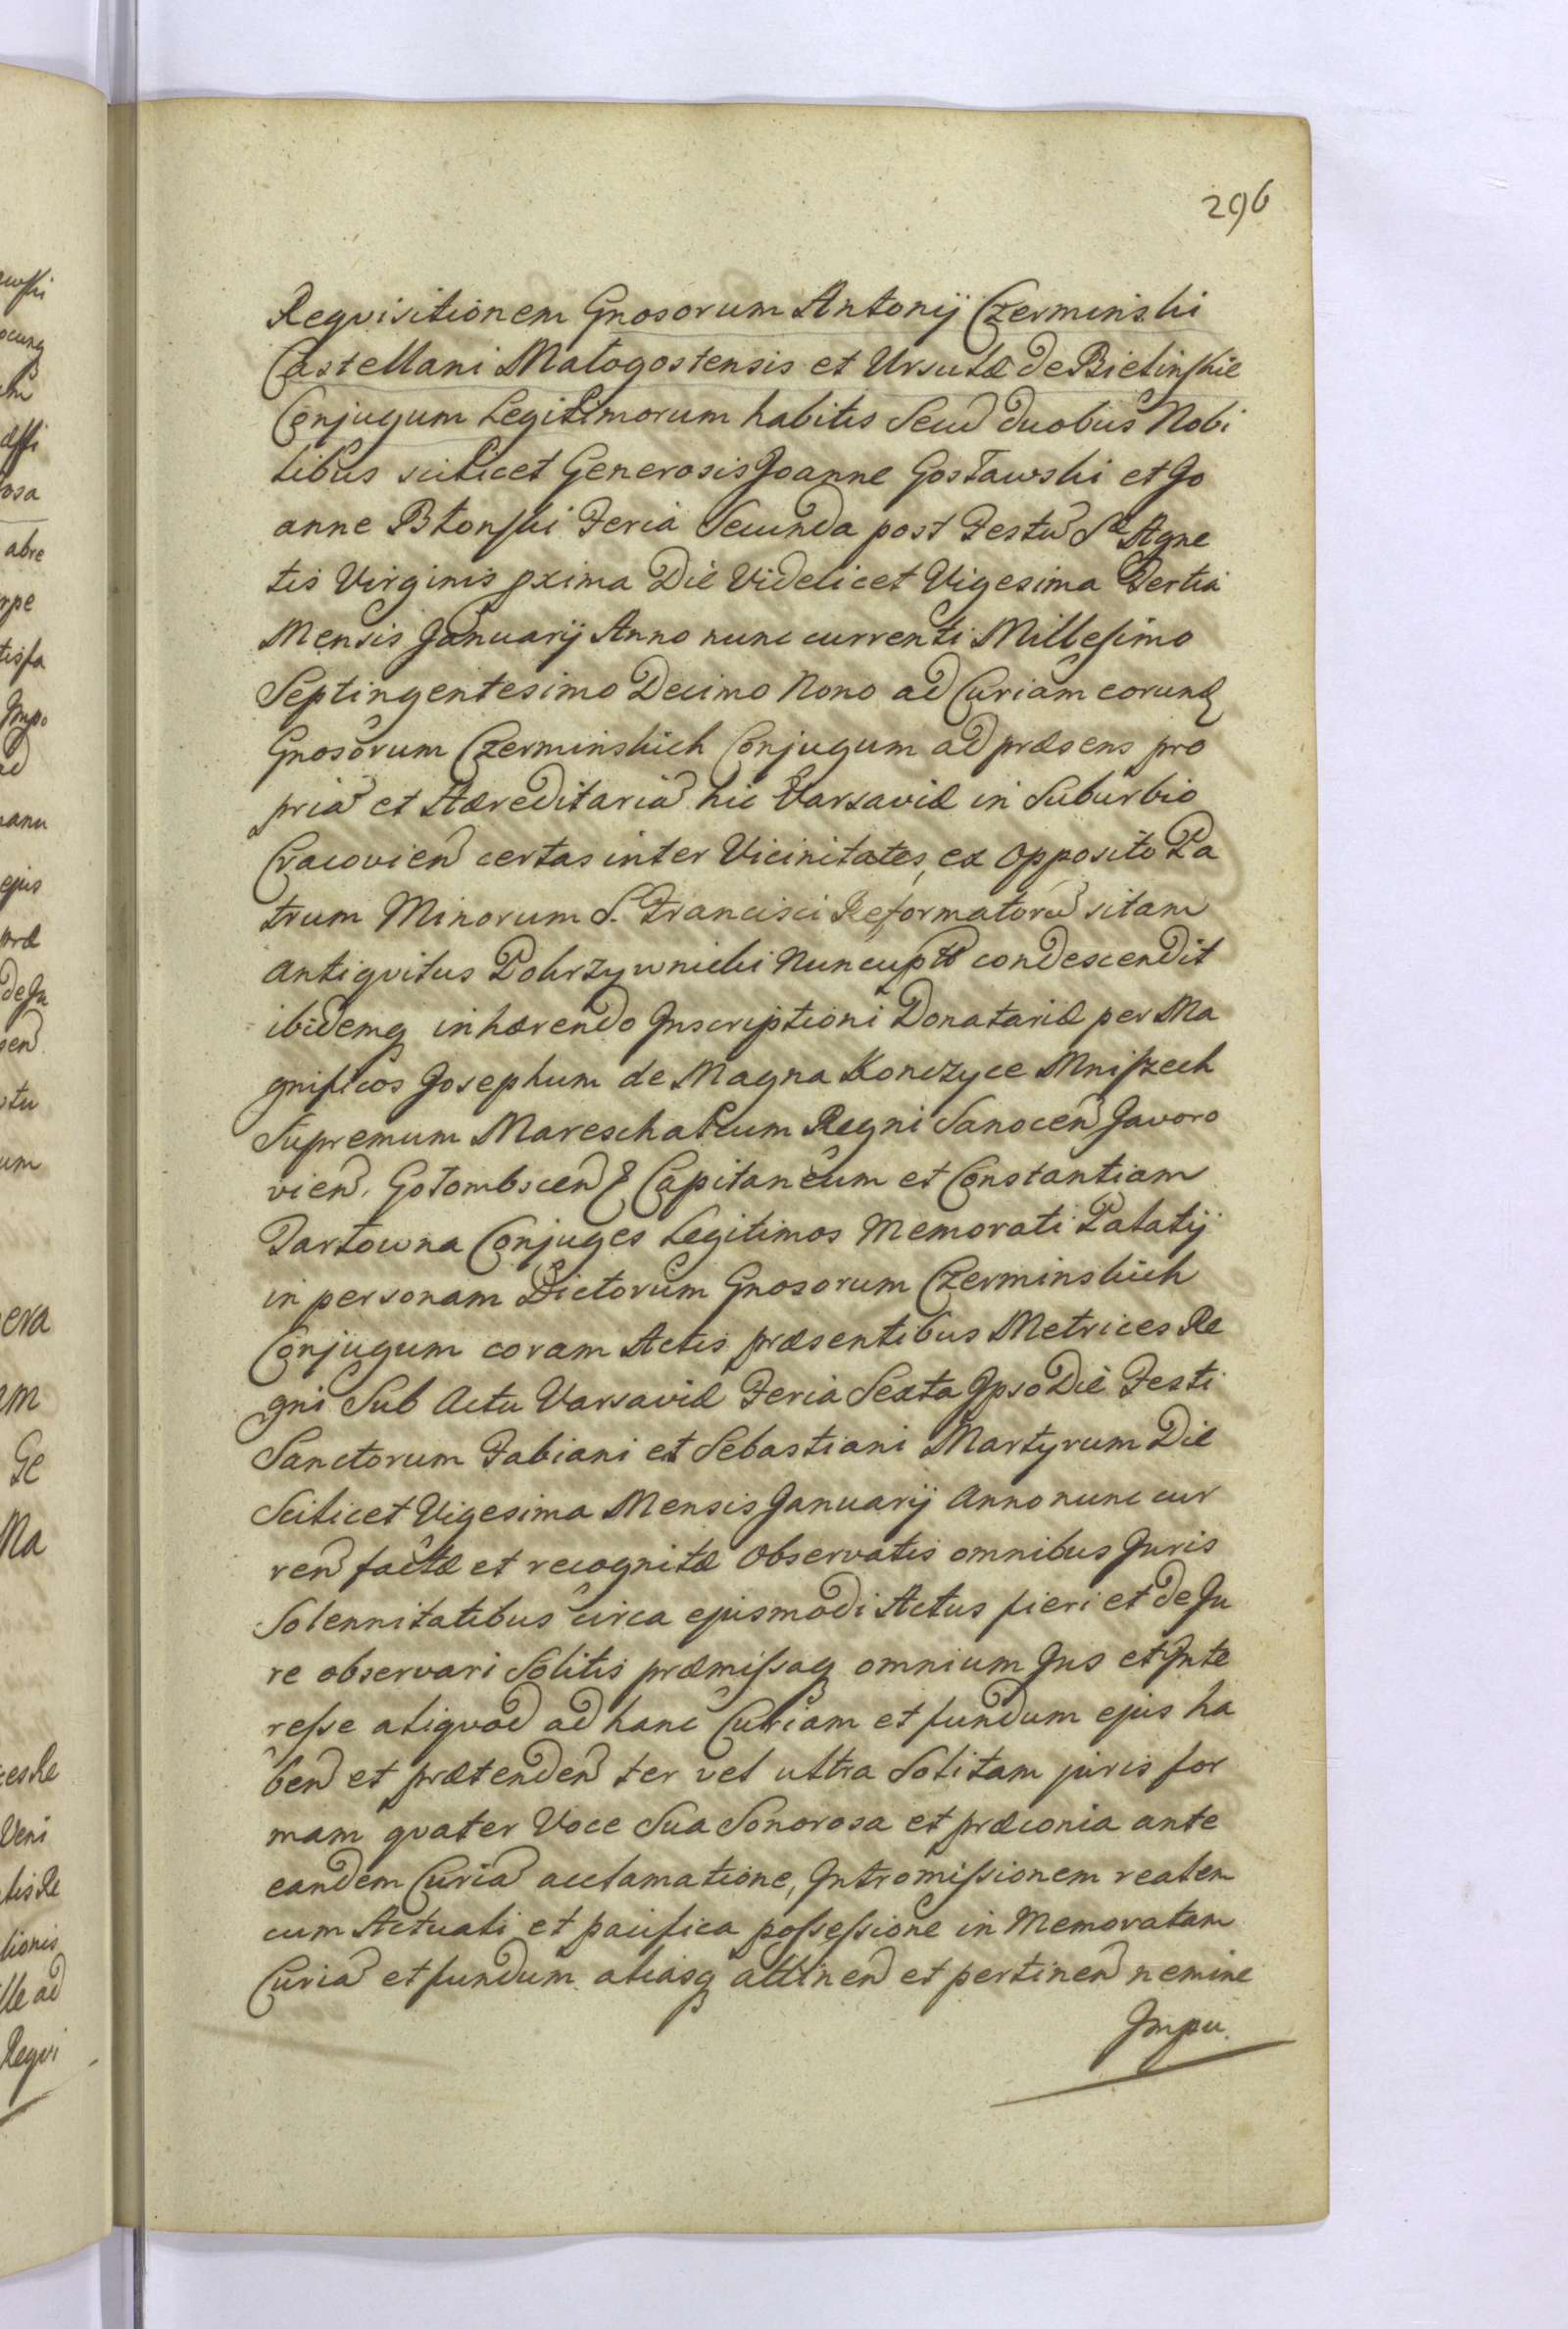 296
Requisitionem Gnosorum Antonij Czerminski
Castellani Małogostensis et Ursulæ de Bielinskie
Conjugum Legitimorum habitis Secu͂ duobus Nobi
libus scilicet Generosis Joanne Gosławski et Jo
anne Błonski Feria Secunda post Festu͂ Stæ Agne
tis Virginis pxima Die Videlicet Vigesima Tertia
Mensis Januarij Anno nunc currenti Millesimo
Septingentesimo Decimo Nono ad Curiam eorund
Gnosorum Czerminskich Conjugum ad præsens pro
pria͂ et Hæreditaria͂ hic Varsaviæ in Suburbio
Cracovien͂ certas inter Vicinitates, ex opposito Pa
trum Minorum S. Francisci Reformatoru͂ sitam
antiquitus Pokrzywnicki Nuncupt͂ condescendit
ibidemq inhærendo Inscriptioni Donatariæ per Ma
gnificos Josephum de Magna Konczyce Mniszech
Supremum Mareschalcum Regni Sanocen͂ Javoro
vien͂. Gołombscen͂ & Capitaneum et Constantiam
Tarłowna Conjuges Legitimos Memorati Palatij
in personam Dictorum Gnosorum Czerminskich
Conjugum coram Actis præsentibus Metrices Re
gni Sub Actu Varsaviæ Feria Sexta Ipso Die Festi
Sanctorum Fabiani et Sebastiani Martyrum Die
Scilicet Vigesima Mensis Januarij Anno nunc cur
ren͂ factæ et recognitæ Observatis omnibus Juris
Solennitatibus circa ejusmodi Actus fieri et de Ju
re observari Solitis præmissaq omnium Jus et Inte
resse aliquod ad hanc Curiam et fundum ejus ha
ben͂ et prætenden͂ ter vel ultra Solitam juris for
mam quater Voce Sua Sonorosa et præconia ante
eandem Curia͂ acclamatione, Intromissionem realem
cum Actuali et pacifica possessione in Memoratam
Curia͂ et fundum aliasq attinen͂ et pertinen͂ nemine
Impu